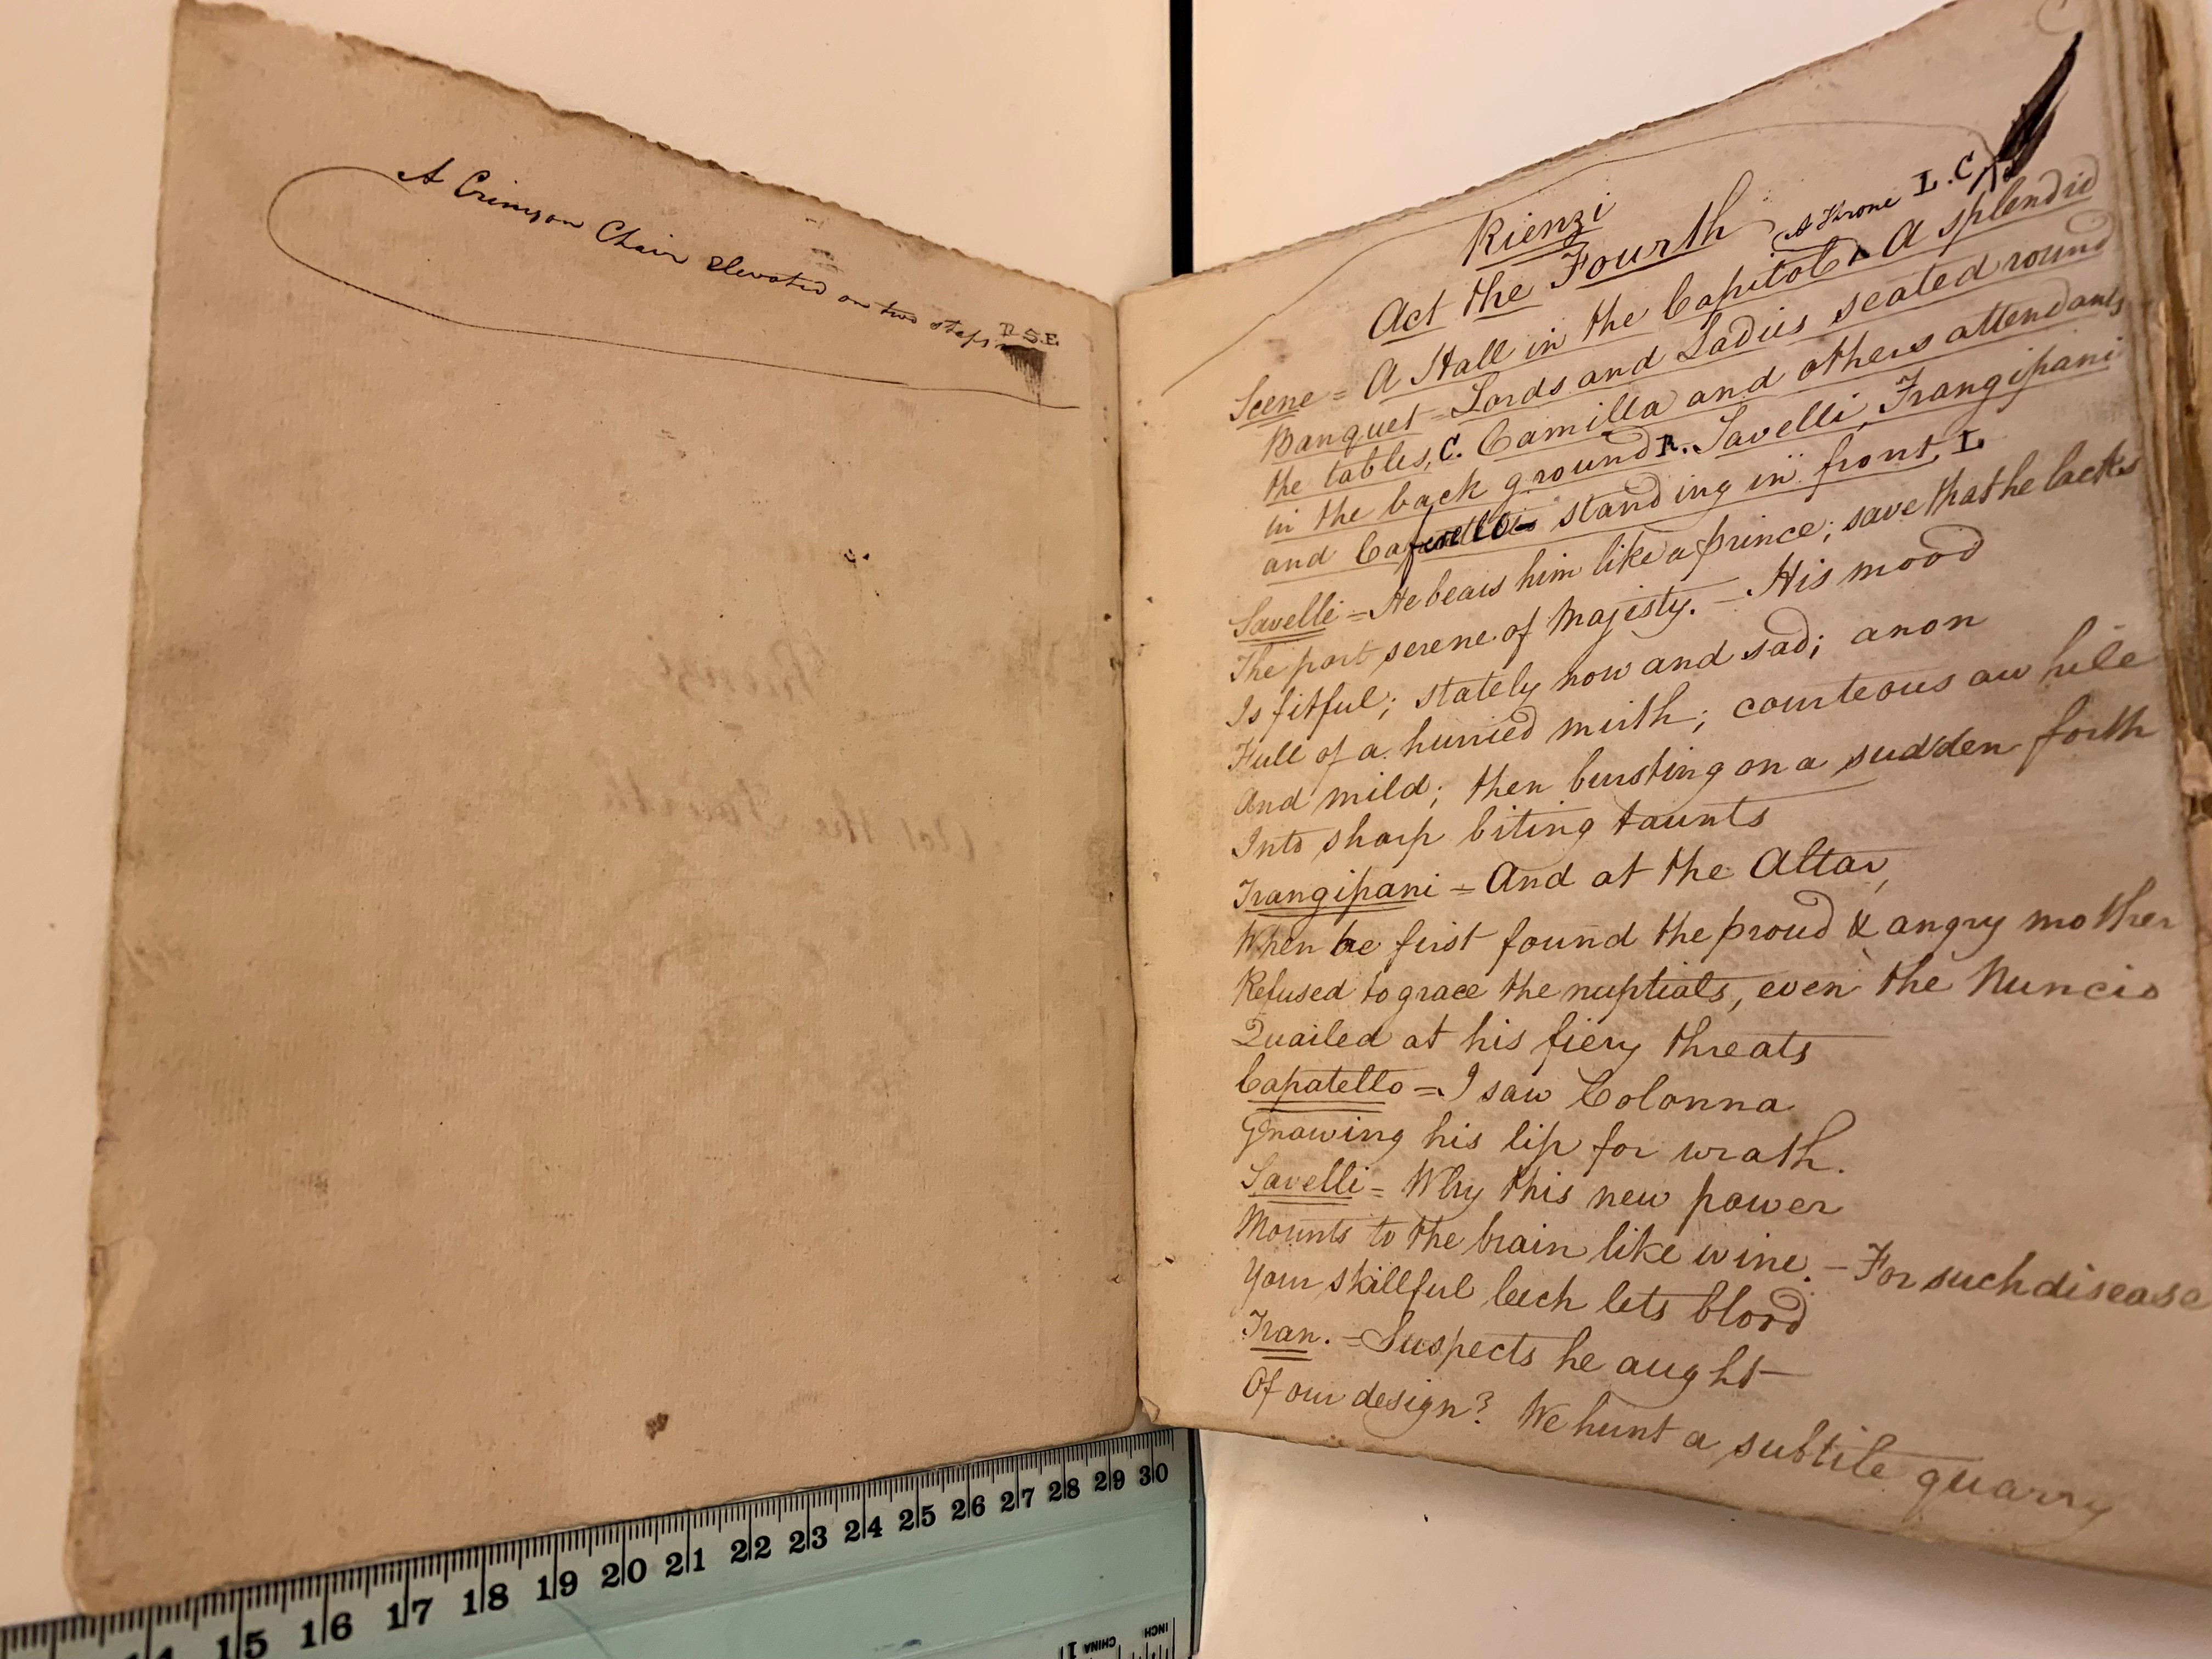 A Crimson Chair elevated on two steps R.S.E.
Rienzi
Act the Fourth
A Throne L.C.
Scene = A Hall in the Capitol A splendid
Banquet = Lords and Ladies seated round
the tables, C. Camilla and others attendants
in the back ground R. Savelli, Frangipani
and standing in front, L
Savelli = He bears him like a prince; save that he lacks
The port serene of Majesty. - His mood
Is fitful; stately now and sad; anon
Full of a hurried mirth; courteous awhile
And mild; then bursting on a sudden forth
Into sharp biting taunts
Frangipani = And at the Altar,
When he first found the proud & angry mother
Refused to grace the nuptials, even the Nuncio
Quailed at his fiery threats
Capatello = I saw Colonna
Gnawing his lip for wrath.
Savelli = Why this new power
Mounts to the brain like wine. - For such disease
Your skillful leech lets blood
Fran. = Suspects he aught
Of our design? We hunt a subtile quarry
Rienzi
Act the Fourth
15 16 17 18 19 20 21 22 23 24 25 26 27 28 29 30
INCH
CHINA
1